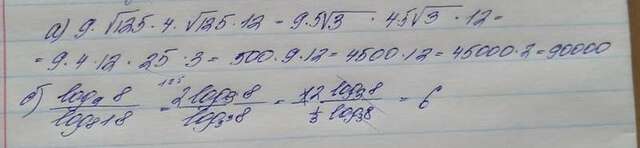 а) 9 · √125 · 4 · √125 · 12 = 9 · 5√3 · 45√3 · 12 =
= 9 · 4 · 12 · 25 · 3 = 500 · 9 · 12 = 4500 · 12 = 45000 · 2 = 90000
б) log 8 / log 18 = 2 log 8 / log 8 = 12 log₃ 8 / ⅓ log₃ 8 = 6